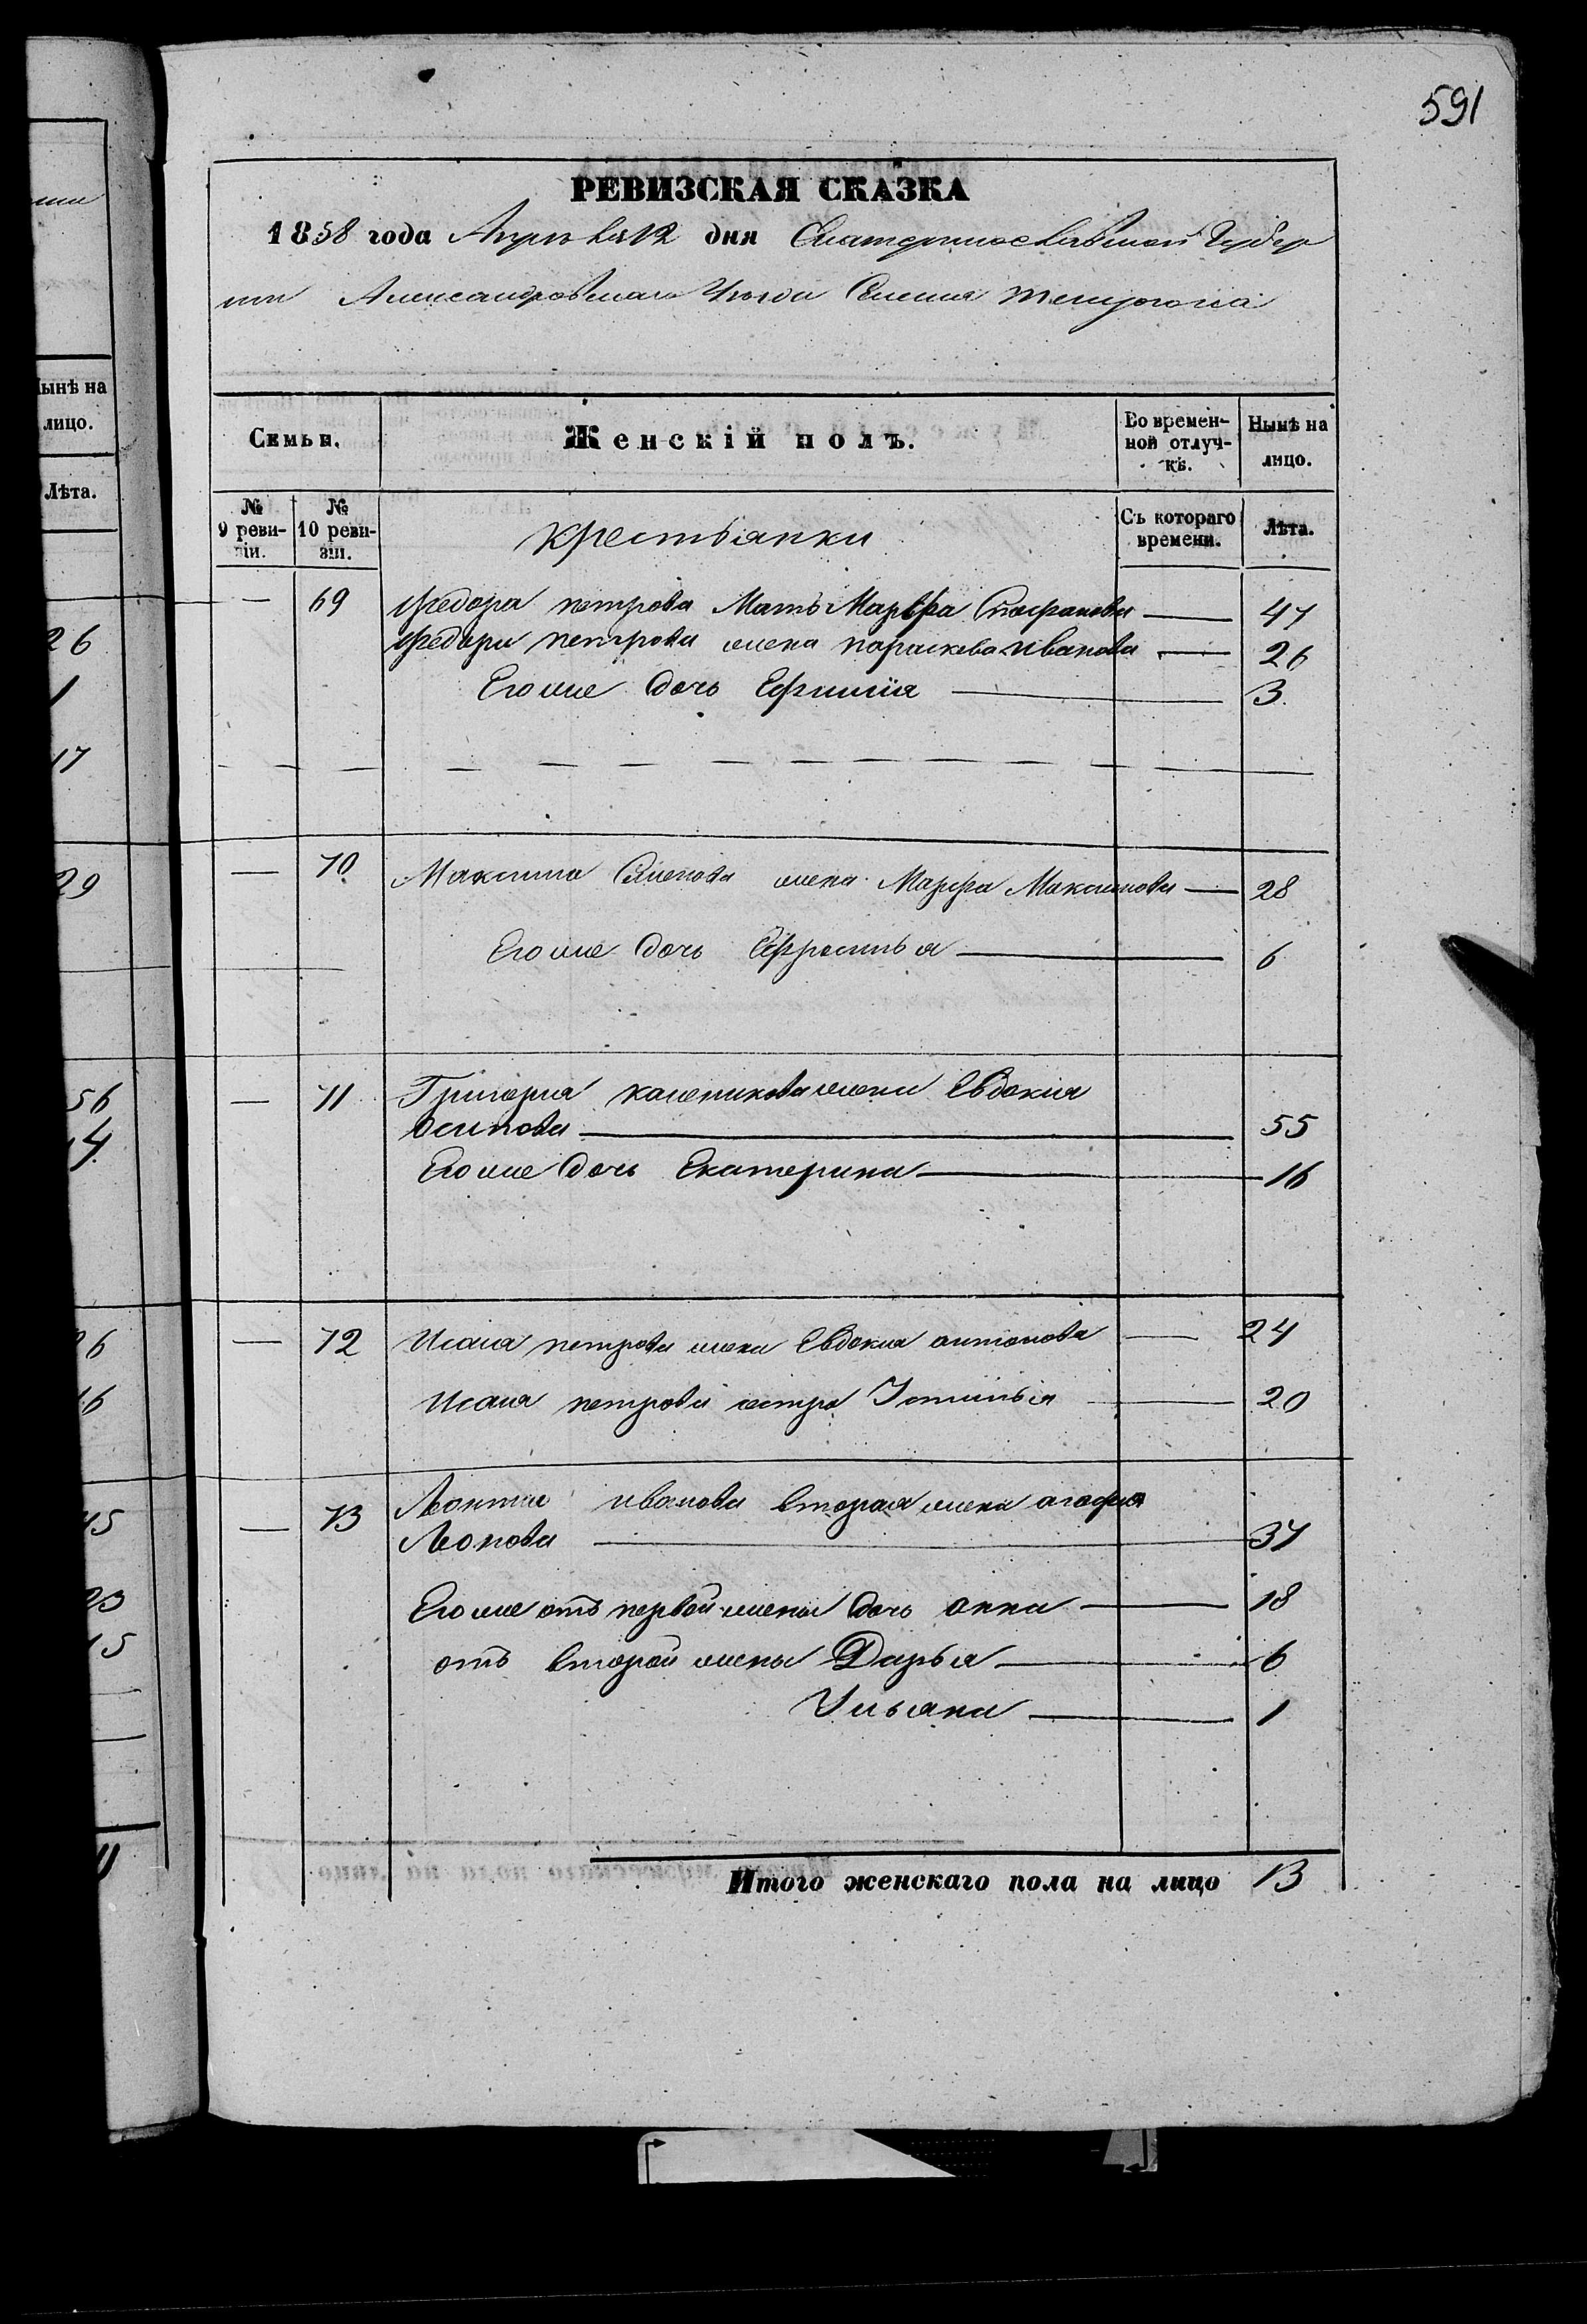 591
РЕВИЗСКАЯ СКАЗКА
1858 года Апреля 12 дня Екатеринославской Губер
нии Александровскаго Уезда Селения Темрюка
Семьи.
Женскій полъ.
Во времен-
ной отлуч-
кѣ.
Нынѣ на
лицо.
№
9 реви-
зіи.
№
10 реви-
зіи.
крестьянки
Съ котораго
времени.
Лѣта.
— 69 Федора петрова Мать Марфа Стефанова — 47
Федора петрова жена параскева иванова — 26
Его же дочь Ефимія — 3
— 70 Максима Семенова жена Марфа Максимова — 28
Его же дочь Ефросинья — 6
— 71 Григория каленикова жена Евдокия
Осипова — 55
Его же дочь Екатерина — 16
— 72 Исаия петрова жена Евдокия антонова — 24
Исаия петрова сестра Устинья — 20
— 73 Леонтия иванова вторая жена агафия
Леонова — 37
Его же отъ первой жены дочь анна — 18
отъ второй жены Дарья — 6
Ульяна — 1
Итого женскаго пола на лицо 13
ынѣ на
лицо.
Лѣта.
26
1
17
29
56
14
26
16
45
23
15
11